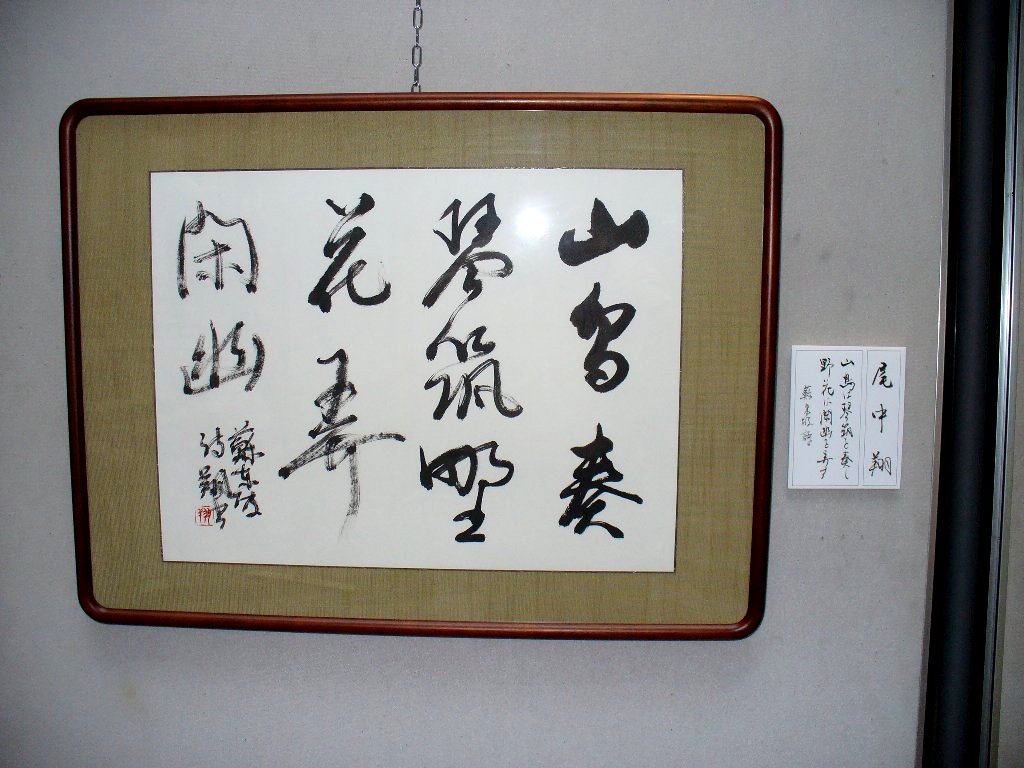 山鳥奏
琴筑野
花弄
閑幽
蘇東坡
詩 翔書
尾中翔
山鳥は琴筑を奏し
野花は閑幽を弄す
蘇東坡詩